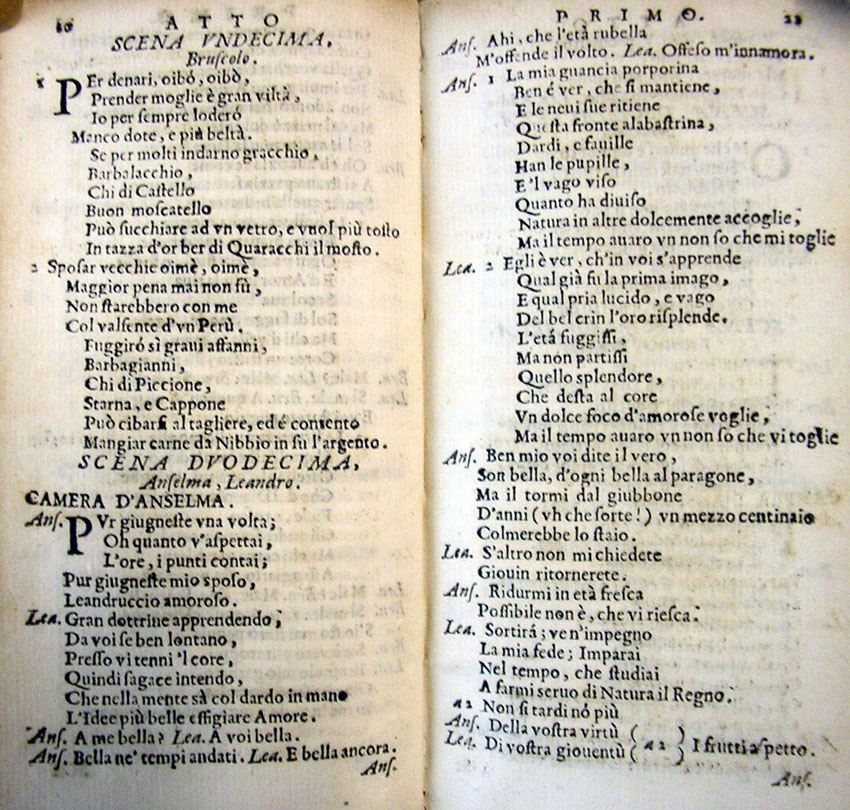 20 ATTO
SCENA VNDECIMA.
Bruscolo.
1 PEr denari, oibó, oibò,
Prender moglie è gran viltà,
Io per sempre loderó
Manco dote, e più beltà.
Se per molti indarno gracchio,
Barbalacchio,
Chi di Castello
Buon moscatello
Può succhiare ad vn vetro, e vuol più tosto
In tazza d'or ber di Quaracchi il mosto.
2 Sposar vecchie oimè, oimè,
Maggior pena mai non fù,
Non starebbero con me
Col valsente d'vn Perù.
Fuggiró sì graui affanni,
Barbagianni,
Chi di Piccione,
Starna, e Cappone
Può cibarsi al tagliere, ed é contento
Mangiar carne da Nibbio in su l'argento.
SCENA DVODECIMA,
Anselma, Leandro.
CAMERA D'ANSELMA.
Ans. PVr giugneste vna volta;
Oh quanto v'aspettai,
L'ore, i punti contai;
Pur giugneste mio sposo,
Leandruccio amoroso.
Lea. Gran dottrine apprendendo;
Da voi se ben lontano,
Presso vi tenni 'l core,
Quindi sagace intendo,
Che nella mente sà col dardo in mano
L'Idee più belle effigiare Amore.
Ans. A me bella? Lea. A voi bella.
Ans. Bella ne' tempi andati. Lea. E bella ancora.
Ans.
PRIMO. 21
Ans. Ahi, che l'età rubella
M'offende il volto. Lea. Offeso m'innamora.
Ans. 1 La mia guancia porporina
Ben é ver, che si mantiene,
E le neui sue ritiene
Questa fronte alabastrina,
Dardi, e fauille
Han le pupille,
E 'l vago viso
Quanto ha diuiso
Natura in altre dolcemente accoglie,
Ma il tempo auaro vn non so che mi toglie
Lea. 2 Egli è ver, ch'in voi s'apprende
Qual già fu la prima imago,
E qual pria lucido, e vago
Del bel crin l'oro risplende.
L'etá fuggissi,
Ma non partissi
Quello splendore,
Che desta al core
Vn dolce foco d'amorose voglie,
Ma il tempo auaro vn non so che vi toglie
Ans. Ben mio voi dite il vero,
Son bella, d'ogni bella al paragone,
Ma il tormi dal giubbone
D'anni (vh che sorte!) vn mezzo centinaio
Colmerebbe lo staio.
Lea. S'altro non mi chiedete
Giouin ritornerete.
Ans. Ridurmi in età fresca
Possibile non è, che vi riesca.
Lea. Sortirá; ve n'impegno
La mia fede; Imparai
Nel tempo, che studiai
A farmi seruo di Natura il Regno.
a2 Non si tardi nó più
Ans. Della vostra virtù
Lea. Di vostra giouentù (a 2) I frutti aspetto.
Ans.